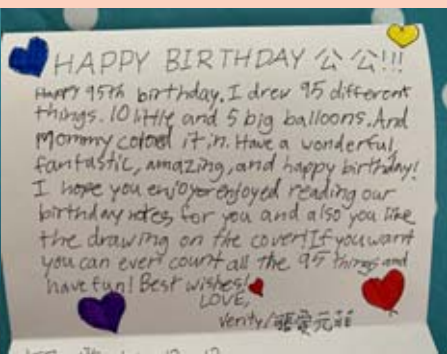 HAPPY BIRTHDAY 公公!!!
Happy 95th birthday. I drew 95 different
things. 10 little and 5 big balloons. And
Mommy colored it in. Have a wonderful,
fantastic, amazing, and happy birthday!
I hope you enjoyed reading our
birthday notes for you and also you like
the drawing on the cover! If you want
you can even count all the 95 things and
have fun! Best wishes!
LOVE,
Verity/張愛元